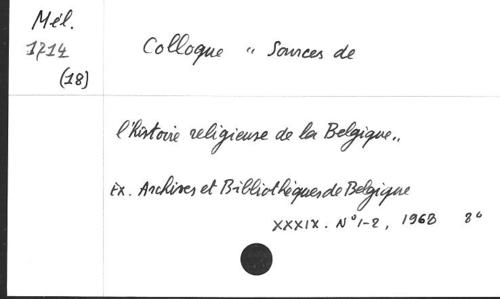 Mél.
1714
(18)
Colloque " Sources de
l'histoire religieuse de la Belgique„
Ex. Archives et Bibliothèques de Belgique
XXXIX. N° 1-2, 1968 8°